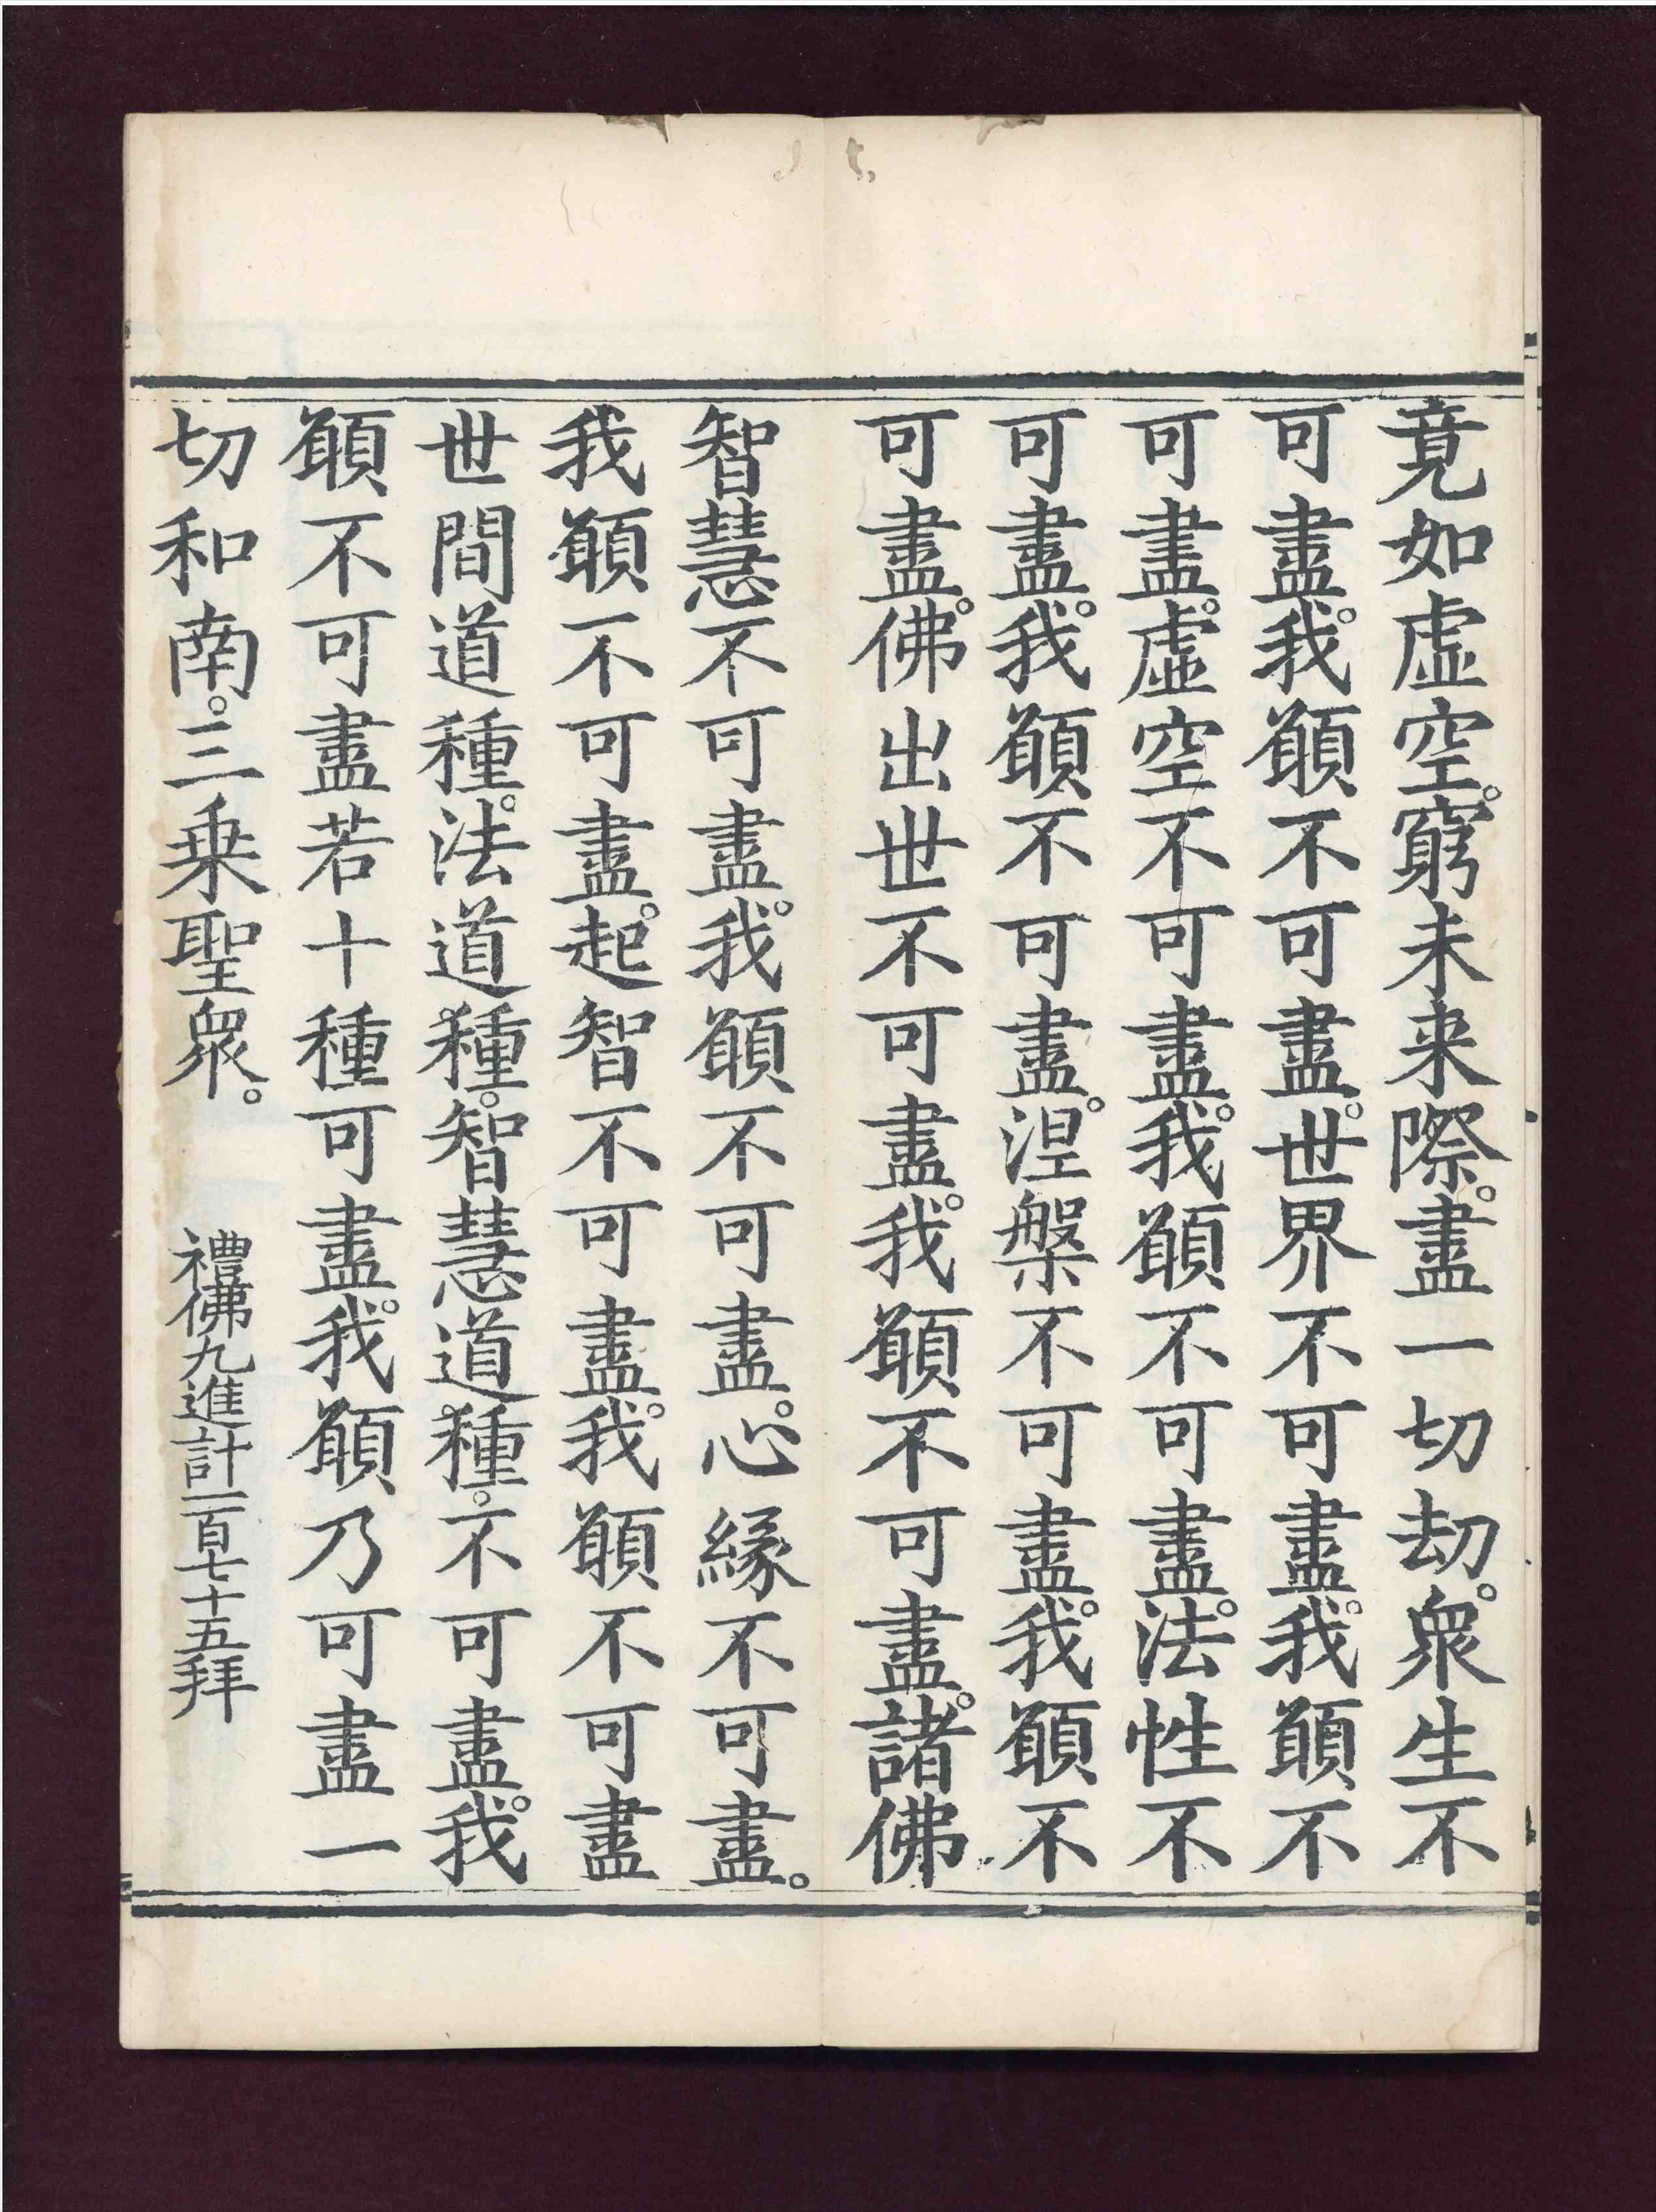 竟如虛空。窮未来際。盡一切劫。衆生不
可盡。我願不可盡。世界不可盡。我願不
可盡。虛空不可盡。我願不可盡。法性不
可盡。我願不可盡。涅槃不可盡。我願不
可盡。佛出世不可盡。我願不可盡。諸佛
智慧不可盡。我願不可盡。心緣不可盡。
我願不可盡。起智不可盡。我願不可盡
世間道種。法道種。智慧道種。不可盡。我
願不可盡若十種可盡。我願乃可盡一
切和南。三乗聖衆。 禮佛九進計一百七十五拜